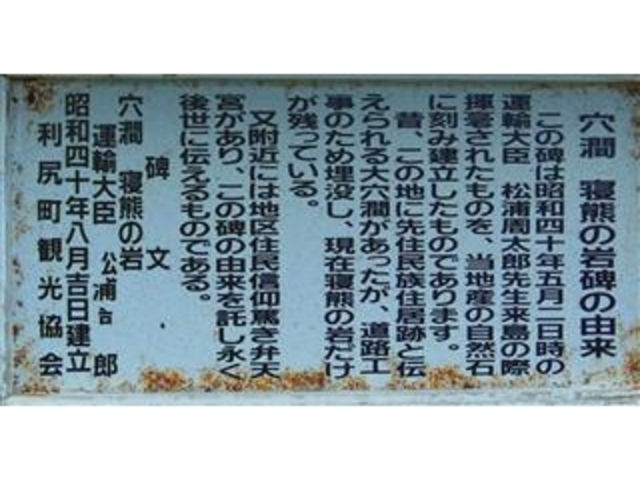 穴澗 寝熊の岩碑の由来
この碑は昭和四十年五月二日時の
運輸大臣 松浦周太郎先生来島の際
揮毫されたものを、当地産の自然石
に刻み建立したものであります。
昔、この地に先住民族住居跡と伝
えられる大穴澗があったが、道路工
事のため埋没し、現在寝熊の岩だけ
が残っている。
又附近には地区住民信仰篤き弁天
宮があり、この碑の由来を託し永く
後世に伝えるものである。
碑文
穴澗 寝熊の岩
運輸大臣 松浦 郎
昭和四十年八月吉日建立
利尻町観光協会